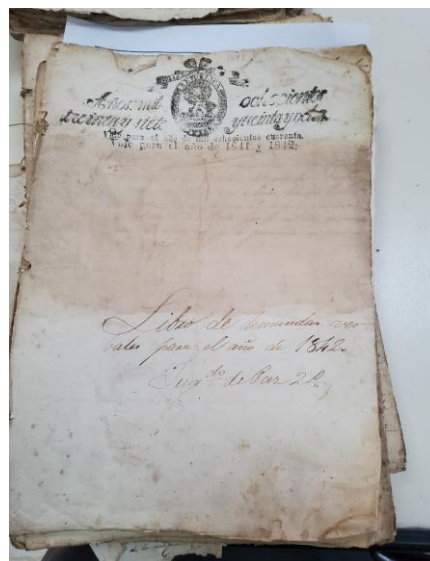 Años mil ochocientos
treinta y siete y treinta y ocho.
Vale para el año de mil ochocientos cuarenta.
Vale para el año de 1841 y 1842.
Libro de demandas ver
bales para el año de 1842.
Juzg.do de Paz 2.o